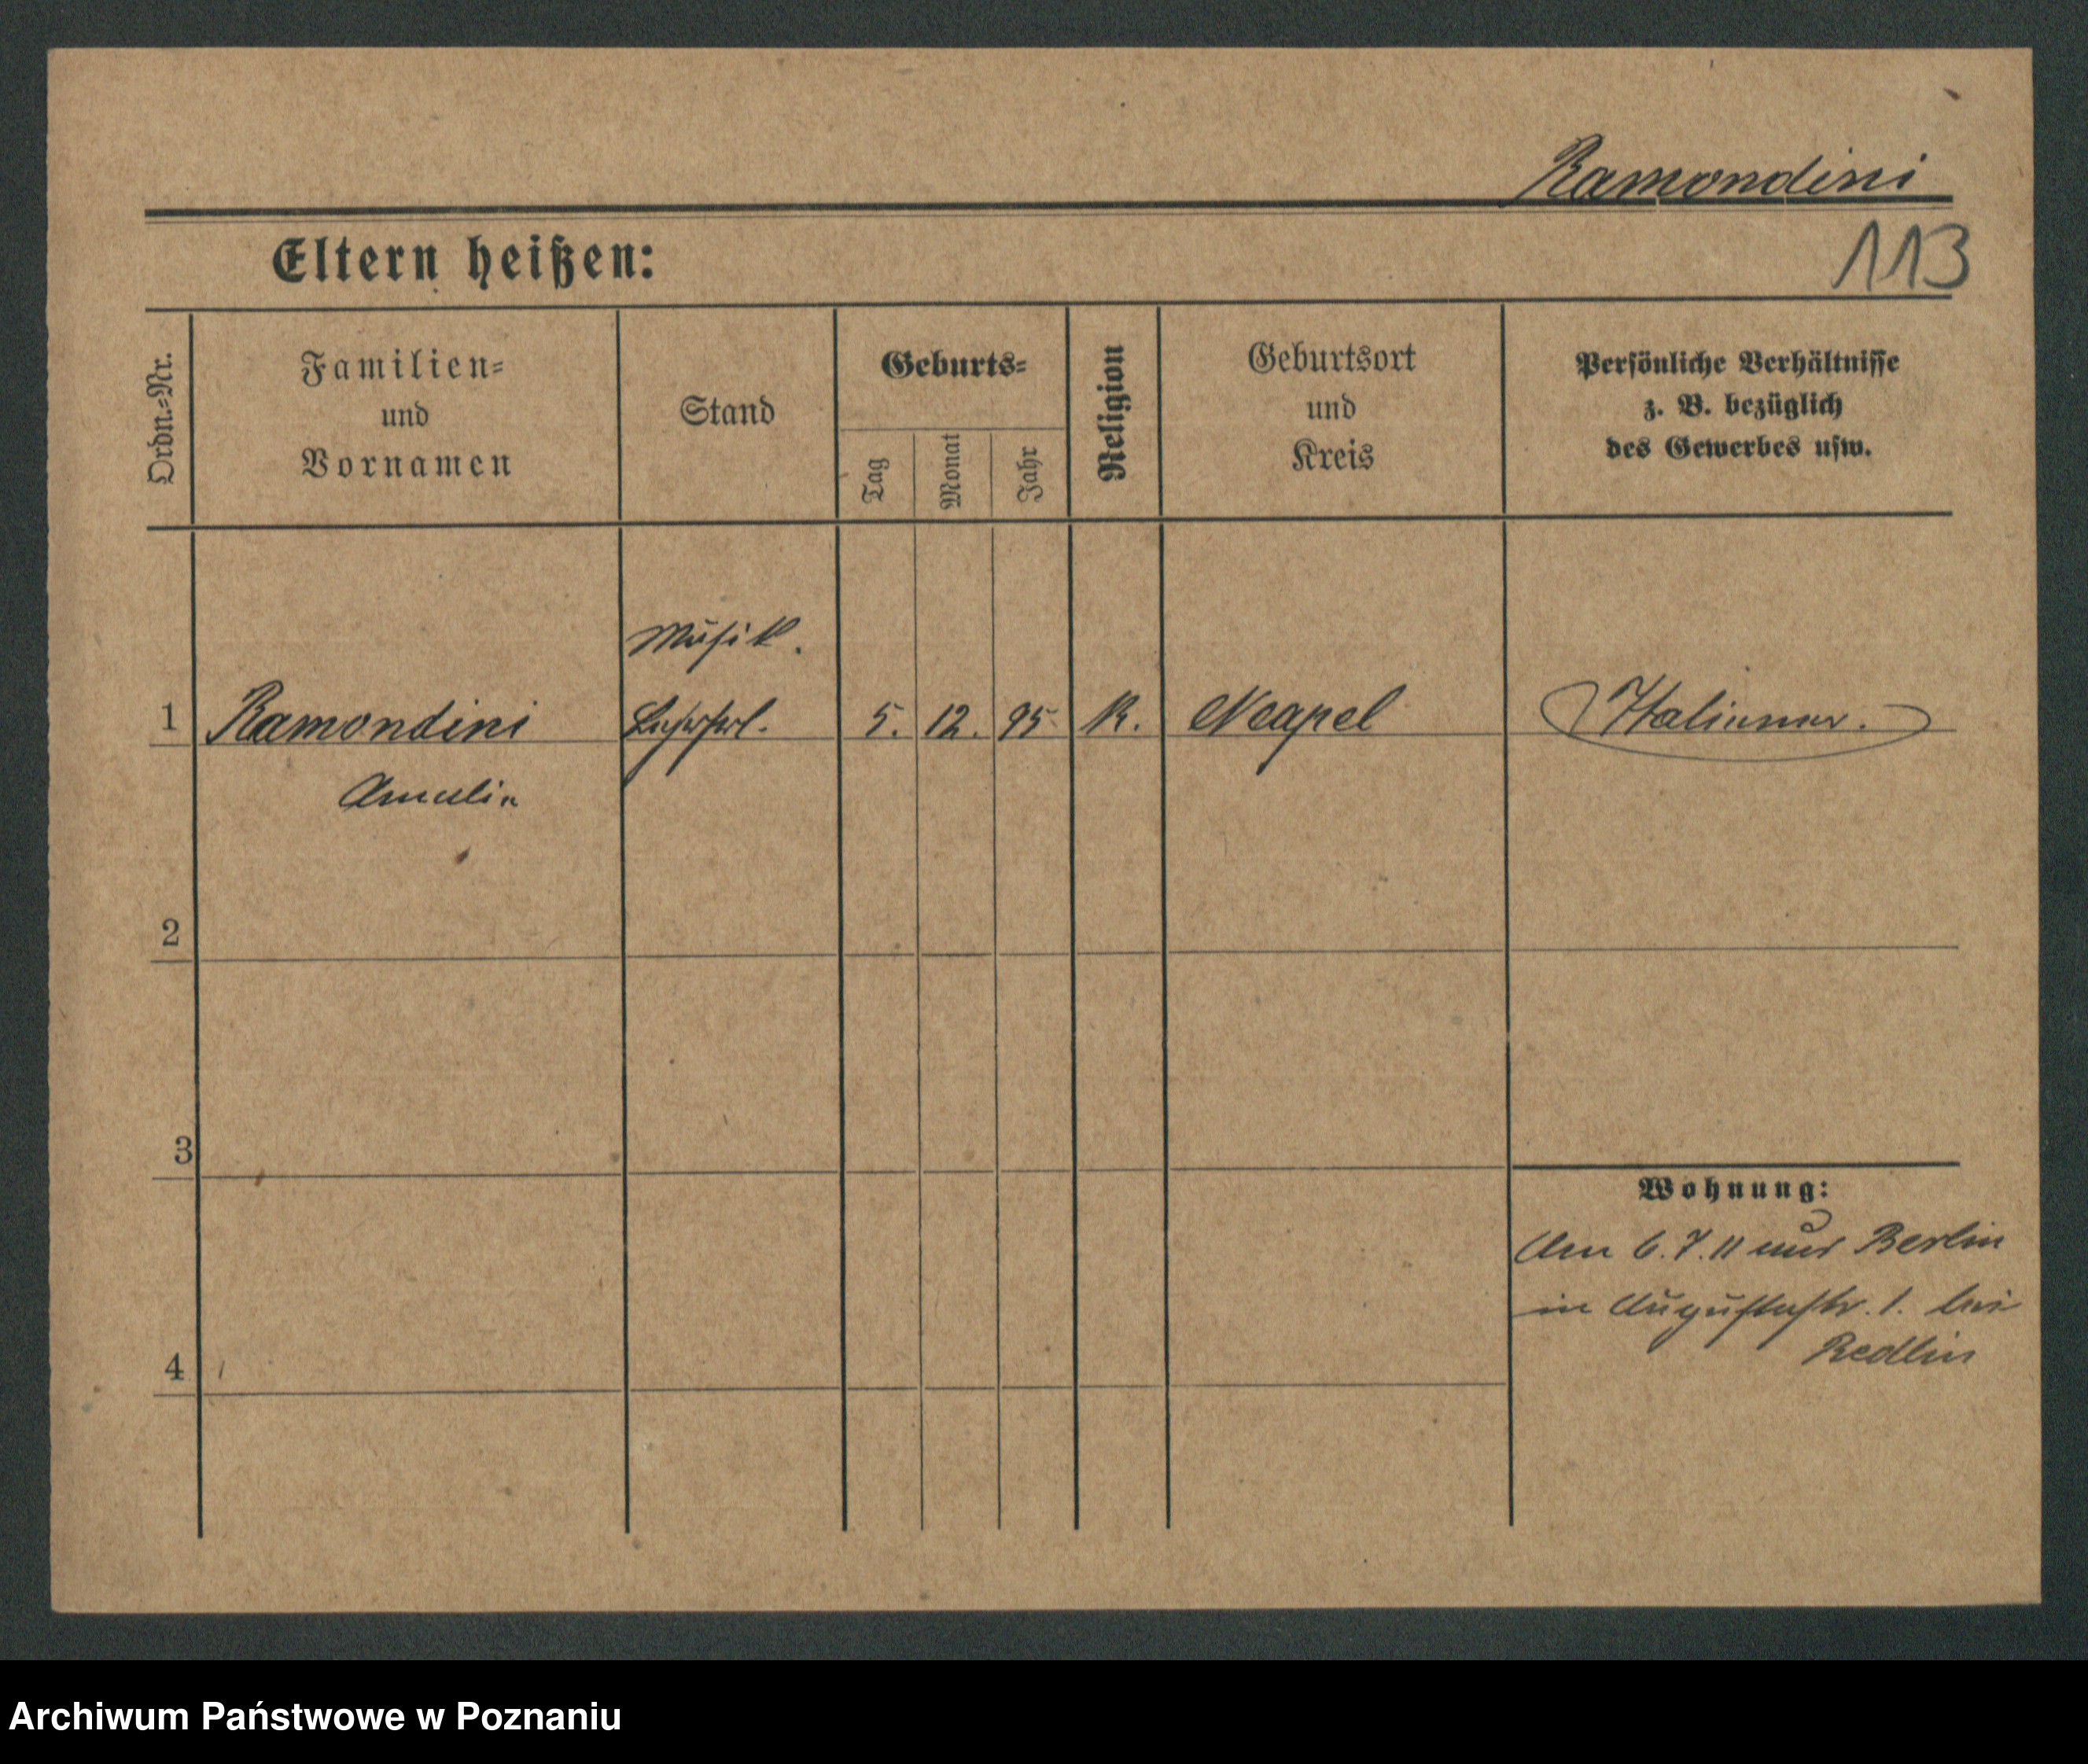 Ramondini
113
Eltern heißen:
Ordn.=Nr.
Familien=
und
Vornamen
Stand
Geburts=
Tag
Monat
Jahr
Religion
Geburtsort
und
Kreis
Persönliche Verhältnisse
z. B. bezüglich
des Gewerbes usw.
Musik.
1 Ramondini 5. 12. 95 K. Neapel Italiener.
Amelia
2
3
Wohnung:
Am 6.7.11 aus Berlin
in Augustastr. 1. bei
Redlin
4
Archiwum Państwowe w Poznaniu